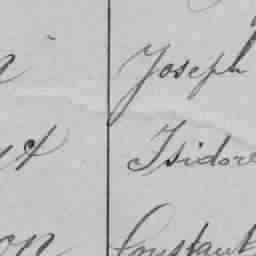 Joseph
Isidore
Constant